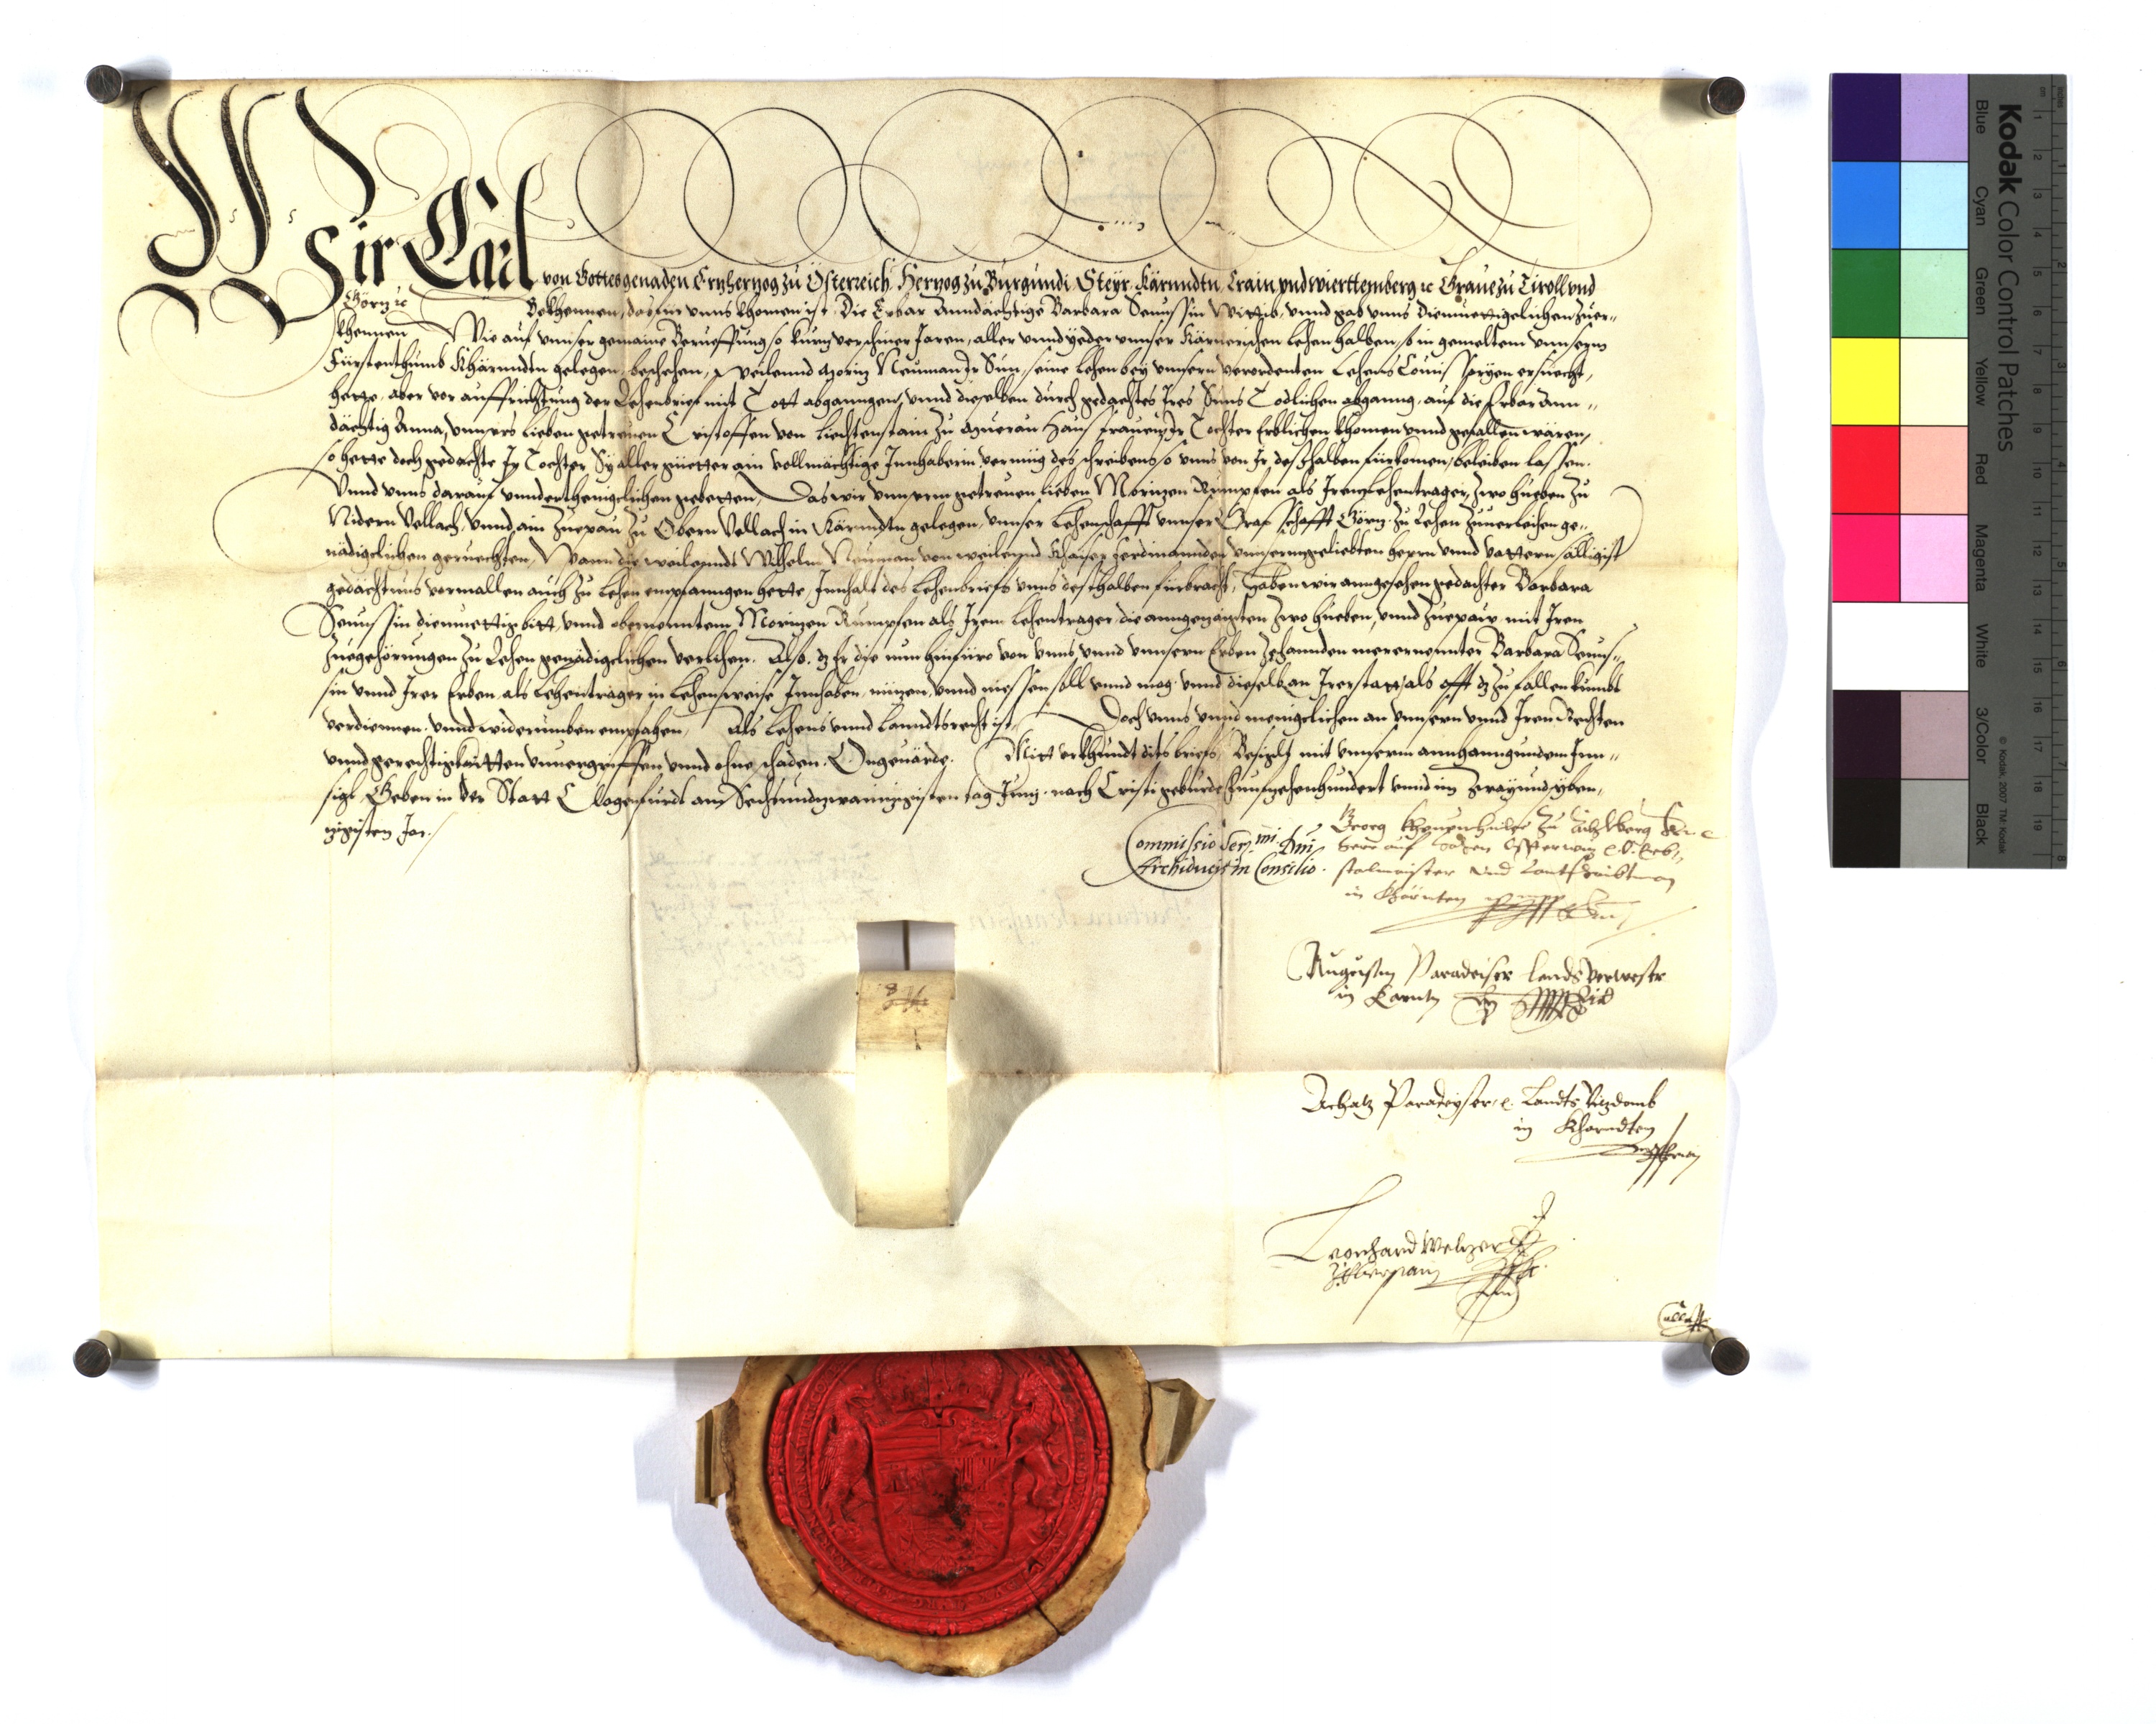 Wir Carl von Gottes genaden Ertzhertzog zu Österreich, Hertzog zu Burgundi, Steyr, Kärnndtn, Crain und Wierttemberg ꝛc Graue zu Tiroll vnd
Görtz ꝛc Bekhennen, das für vnns khomen ist, Die Erbar Anndächtige Barbara Seuussin Wittib, vnnd gab vnns diemuettigclichen zuer„
khennen Wie auf vnnser gemaine Berueffung, so kurtz verschiner Jaren, aller vnnd yeder vnnser Kärnerischen Lehen halben, so in gemeltem vnnserm
Fürstenthumb Khärnndtn gelegen, beschehen, weilennd Moritz Neuman Ir Sun, seine Lehen bey vnnsern verordenten Lehens Comissaryen ersuecht,
hette, aber vor auffrichtung der Lehenbrief mit Tott abganngen, vnnd dieselben durch gedachtes Ires Suns Todlichen abganng, auf die Erbar Ann„
dächtig Anna, vnnsers lieben getreuen Cristoffen von Liechtenstain zu Muerau Hausfrauen, Ir Tochter Erblichen khomen vnnd gefallen wären,
so hette doch gedachte Ir Tochter Sy aller güetter ain vollmächtige Innhaberin vermüg des schreibens so vnns von Ir deßhalben fürkomen, beleiben lassen.
Vnnd vnns darauf vnnderthenigclichen gebetten, Das wir vnnserm getreuen lieben Moritzen Rumpfen als Irem Lehentrager, zwo hueben zu
Nidern Vellach, vnnd ain Zuepau zu Obern Vellach in Kärnndtn gelegen, vnnser Lehenschafft vnnser Grafschafft Görtz, zu Lehen zuuerleihen ge„
nädigclichen geruechten, Wann die weilenndt Wilhelm Neuman von weilennd Khaiser Ferdinannden vnnserm geliebten herrn vnnd vattern sälligist
gedachtnus vormallen auch zu Lehen empfanngen hette, Innhalt des Lehenbriefs vnns deßhalben fürbracht, Haben wir anngesehen gedachter Barbara
Seuussin diemuettig bitt, vnnd obernenntem Moritzen Rumpfen als Irem Lehentrager, die anngezaigten zwo hueben, vnnd Zuepaw mit Iren
zuegehörungen zu Lehen genädigclichen verlihen. Also, dz Er die nun hinfüro von vnns vnnd vnnsern Erben zehannden merernennter Barbara Seuus„
sin vnnd Irer Erben, als Lehentrager in Lehensweise Innhaben, nützen, vnnd niessen soll vnnd mag, vnnd dieselb an Irer statt, als offt dz zu fallen kumbt
verdiennen, vnnd widerumben empfahen, Als Lehens vnnd Lanndtsrecht ist, Doch vnns vnnd menigclichen an vnnsern vnnd Iren Rechten
vnnd gerechtigkaitten vnuergriffen vnnd ohne schaden. Ongeuärde. Mitt vrkhundt dits briefs, Besiglt mit vnnserm annhanngundem Inn„
sigl, Geben in der Statt Clagenfurdt am Sechsundzwaintzigisten tag Junij, nach Cristi geburde Funfzehenhundert vnnd im Zwayundsyben„
tzigisten Jar./
Commissio Sermi. Dni
Archiducis in Consilio.
Georg Kheuenhüller zu Aichlberg
Herr auf Erb„
stalmaister vnd Lantshaubtman
in Khärnten
Augustin Paradeiser landsverweser
in Karntn
Achatz Paradeyser ꝛc. Landts Vizdomb
in Kharndten
Leonhard Welzer